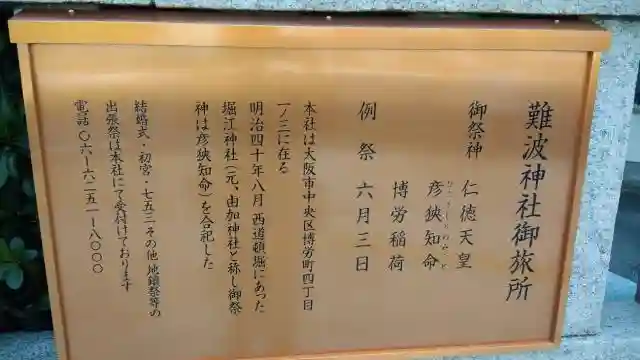 難波神社御旅所
御祭神 仁徳天皇
彦狭知命
ひこさしりのみこと
博労稲荷
例祭 六月三日
本社は大阪市中央区博労町四丁目
一ノ三に在る
明治四十年八月 西道頓堀にあった
堀江神社(元、由加神社と称し御祭
神は彦狭知命)を合祀した
結婚式・初宮・七五三その他地鎮祭等の
出張祭は本社にて受付けております
電話 〇六ー六二五一ー八〇〇〇